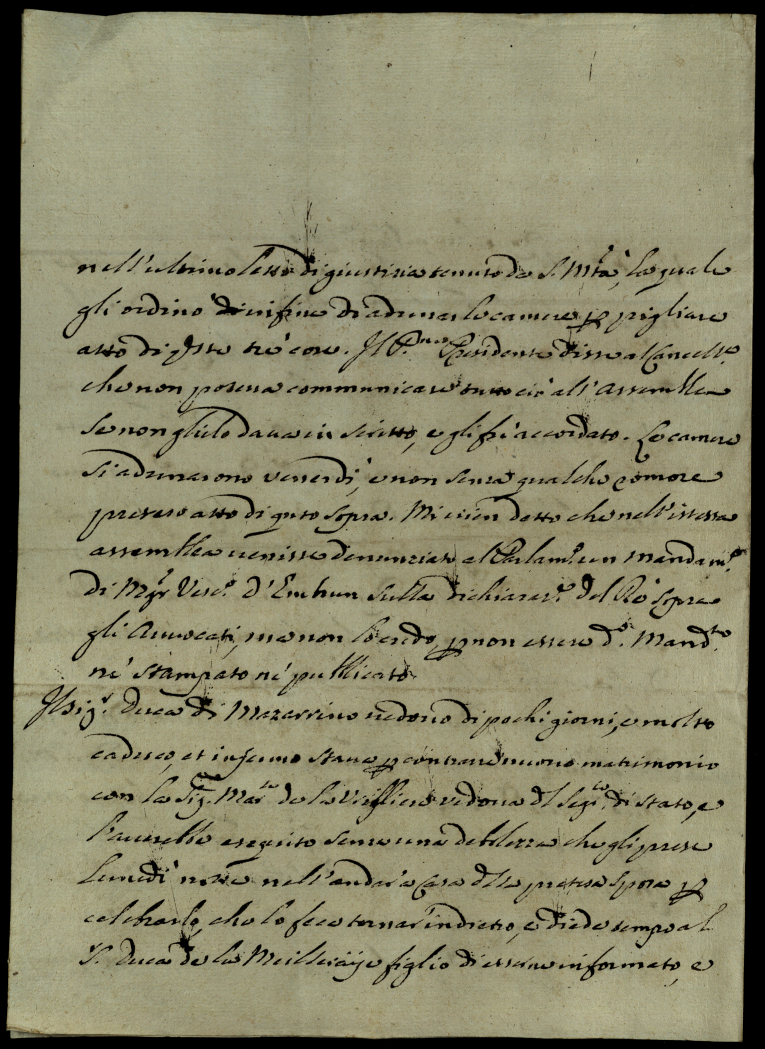 nell'ultimo letto di giustizia tenuto da S. Mtà, la quale
gli ordinò in fine di adunar le camere p pigliare
atto di tre cose. Il P.mo Presidente disse al Cancell.e
che non poteva communicare tutto ciò all'Assemblea
se non glielo dava in scritto, e gli fù accordato. Le camere
si adunarono venerdì, e non senza qualche romore
presero atto di qnto sopra. Mi vien detto che nell'istessa
assemblea venisse denunziato al Parlam.to un mandam.to
di Mgr Vesc.o d'Embrun sulla dichiaraz.e del Rè sopra
gli Avvocati, ma non lo credo, p non essere d.o Mand.to
nè stampato nè pubblicato.
Il Sig.r Duca di Mazzarrino vedovo di pochi giorni, e molto
cadeco, et infermo stava p contrarre nuovo matrimonio
con la Sig.ra Mar.sa de la Vrilliere vedova dl Seg.rio di Stato, e
l'averebbe eseguito senza una debolezza che gli prese
Lunedì notte nell'andar'a Casa dlla pretesa sposa p
celebrarlo, che lo fece tornar'indietro, e diede tempo al
S. Duca de la Meilleraÿe figlio di esserne informato, e